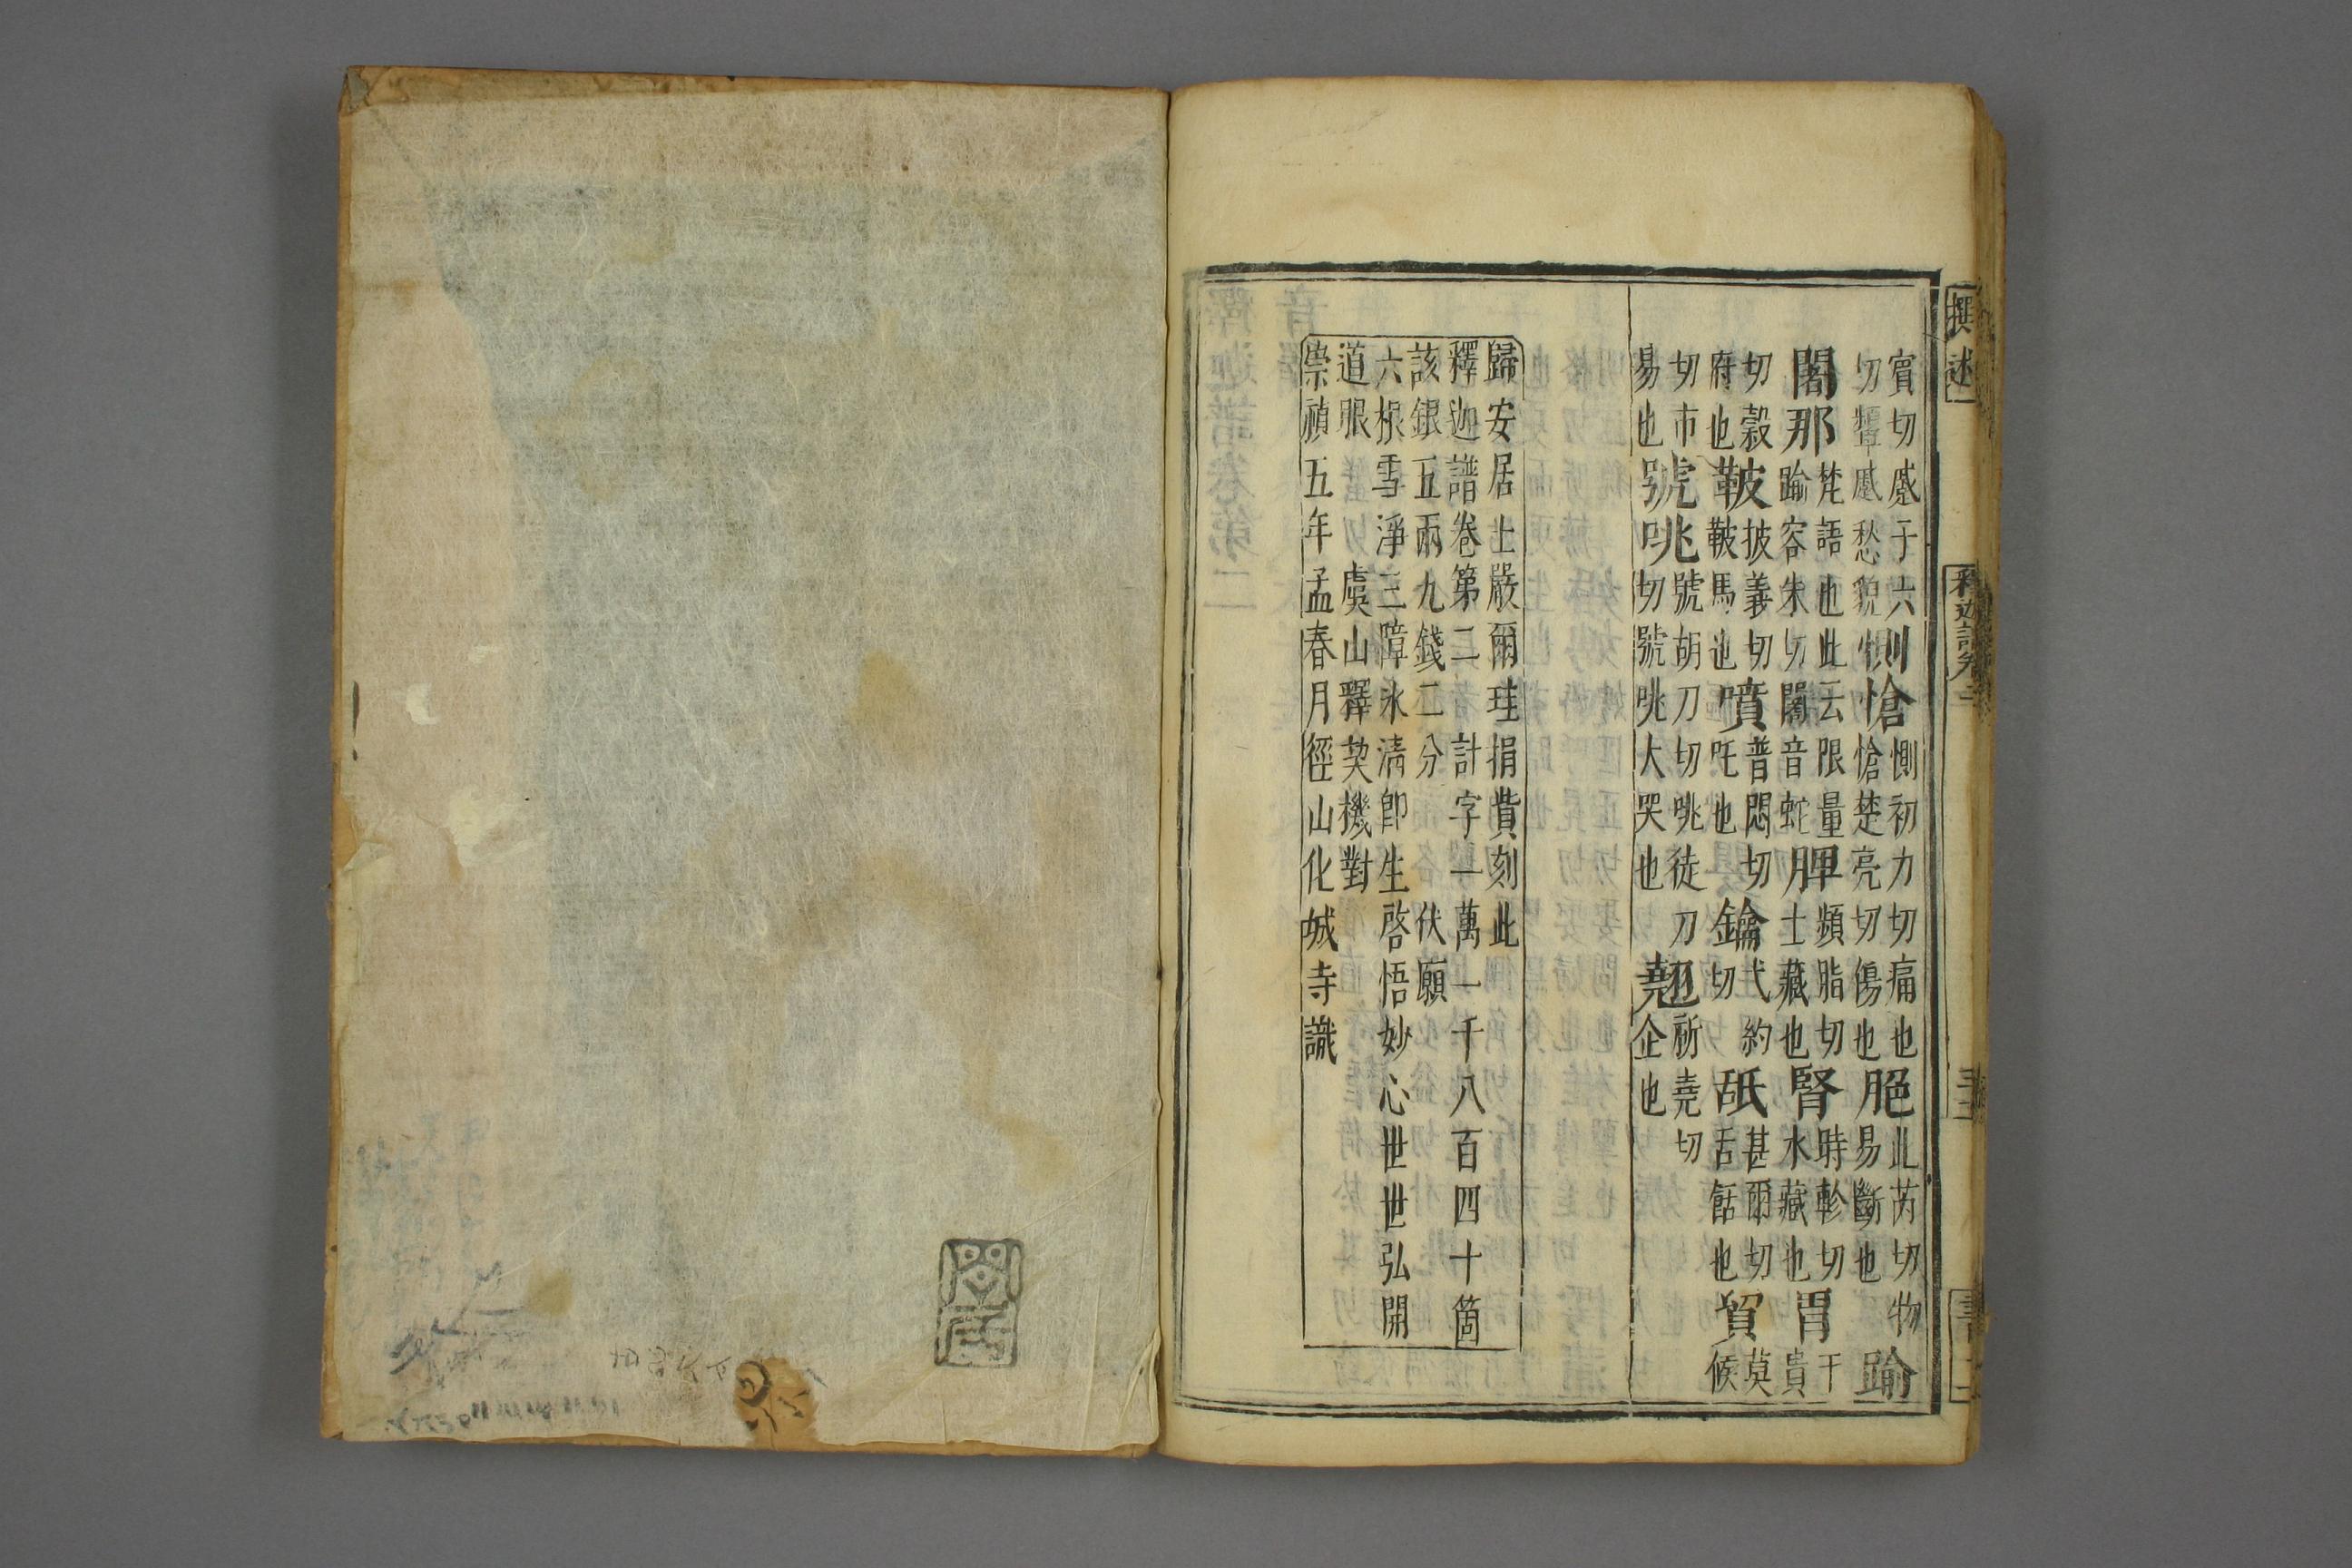 賓切慼于六切顰慼愁貌惻愴惻初力切痛也愴楚亮切傷也脃此芮切物易斷也踰
闍那梵語也此云限量踰容朱切闍音蛇脾頻脂切土藏也腎時軫切水藏也胃于貴
切穀府也鞁披義切鞁馬也噴普悶切吒也鑰弋約切舐甚爾切舌餂也貿莫候
切市易也號咷號胡刀切咷徒刀切號咷大哭也翹祈堯切企也
歸安居士嚴爾珪捐貲刻此
釋迦譜卷第二 計字一萬一千八百四十箇
該銀五兩九錢二分 伏願
六根雪淨三障氷清卽生啓悟妙心世世弘開
道眼 虞山釋契機對
崇禎五年孟春月徑山化城寺識
撰述
釋迦譜卷二